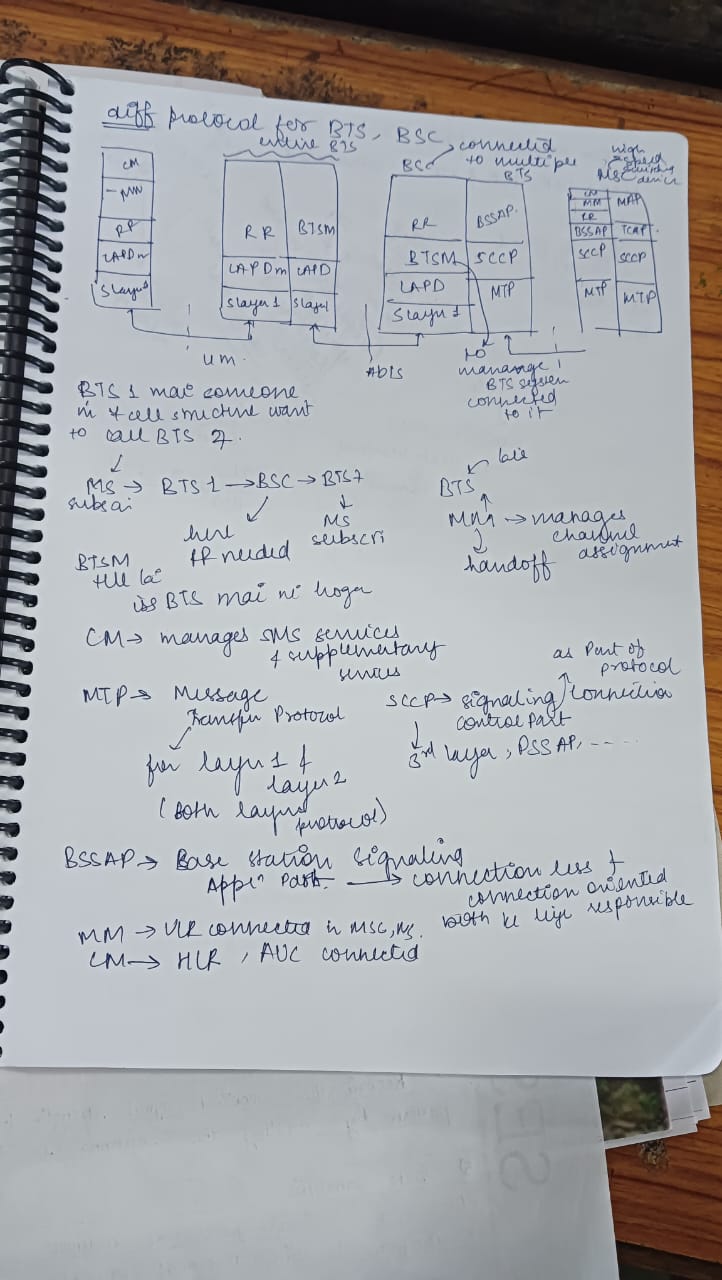 diff protocol for BTS, BSC
entire BTS
BSC connected to multiple BTS
high speed
MSC device
CM
MM
RR
LAPDm
RR
BTSM
LAPDm
LAPD
Slayer 1
Slayer 1
RR
BTSM
LAPD
Slayer 1
BSSAP
SCCP
MTP
CM
MM
RR
BSSAP
SCCP
MTP
MAP
TCAP
SCCP
MTP
um
Abis
to
manange
BTS
connected
to it
BTS 1 mai someone
in 7 cell structure want
to call BTS 7.
MS → BTS 1 → BSC → BTS 7
here
RR needed
MS
BTS
MM → manages
channel
assignment
handoff
BTSM
iss BTS mai ni hoga
CM → manages SMS services
& supplementary
services
MTP → Message
Transfer Protocol
for layer 1 &
layer 2
(both layers
protocol)
as Part of
protocol
SCCP → signaling connection
control part
3rd layer,
BSSAP → Base Station Signaling
Appln Part. → connection less &
connection oriented
both ke liye responsible
MM → VLR connected in MSC,
CM → HLR, AUC connected